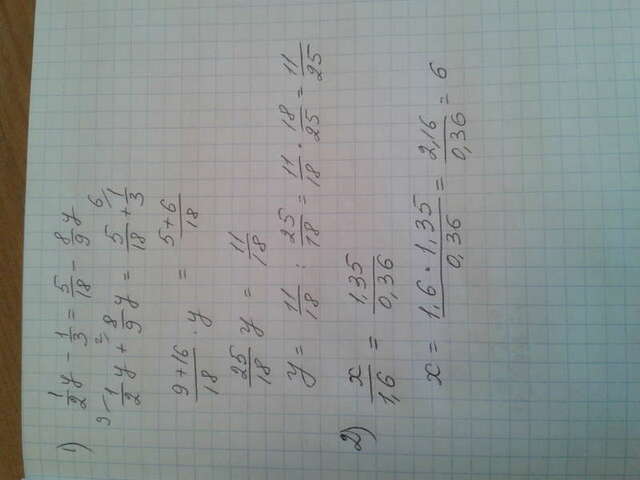 1) 1/2 y - 1/3 = 5/18 - 8/9 y
9 1/2 y + 2 8/9 y = 5/18 + 6 1/3
9+16/18 · y = 5+6/18
25/18 y = 11/18
y = 11/18 : 25/18 = 11/18 · 18/25 = 11/25
2) x/1,6 = 1,35/0,36
x = 1,6 · 1,35/0,36 = 2,16/0,36 = 6